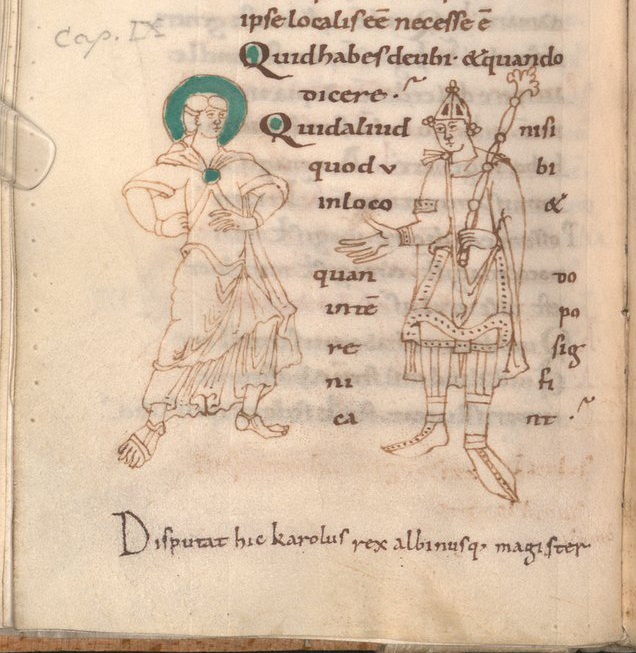 cap. IX
ipse localis eē necesse ē
Quid habes de ubi · & quando
dicere ·
Quid aliud nisi
quod v bi
in loco &
quan do
in tē po
re sig
ni fi
ca nt ·
Disputat hic karolus rex albinusq, magister